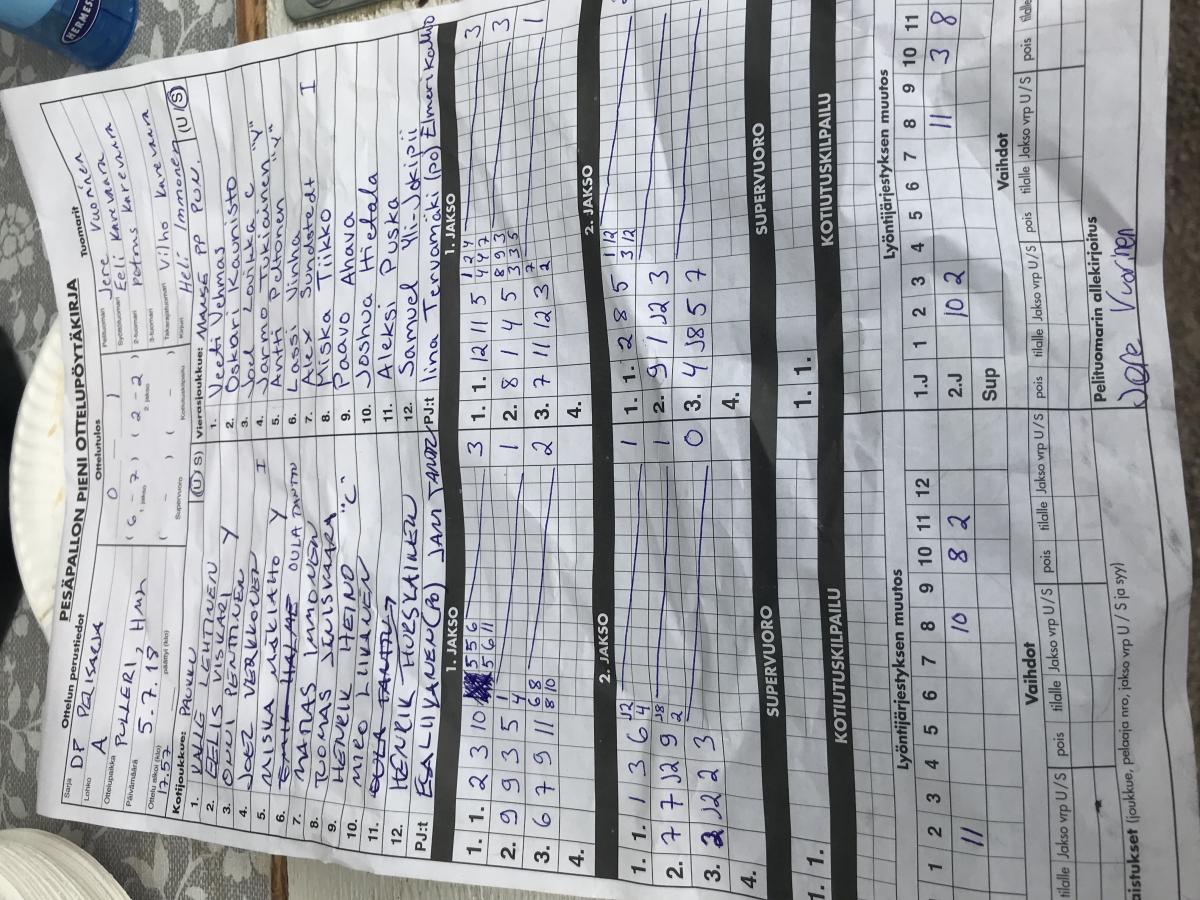 HERMES
PESÄPALLON PIENI OTTELUPÖYTÄKIRJA
Ottelun perustiedot
Ottelutulos
Tuomarit
Sarja DP PELISARJA
Lohko A
Ottelupaikka PULLERI, HMA
Päivämäärä 5.7.18
Ottelu alkoi (klo) 17.57
päättyi (klo)
0 1
( 6 - 7 ) ( 2 - 2 )
1. jakso 2. jakso
( - ) ( - )
Supervuoro Kotiutuskilpailu
Pelituomari Jere Vuorinen
Syöttötuomari Eeli Karevaara
2-tuomari
3-tuomari
Takarajatuomari Vilho Karevaara
Kirjuri Heli Immonen
Kotijoukkue: PAUKKU (U/S)
1. KALLE LEHTINEN
2. EELIS VISKARI
3. ONNI PENTTINEN Y
4. JOEL VERKKONEN I
5. MISKA MÄKIAHO Y
6. OULA TANTTU
7. MATIAS IMMONEN
8. TUOMAS
9. HENRIK HEINO "C"
10. MIRO LIIKANEN
11.
12. HENRIK HURSKAINEN
PJ:t ESA LIIKANEN (PO) JANI TANTTU
Vierasjoukkue: MANSE PP PUN. (U/S)
1. Veeti Vehmas
2. Oskari Kaunisto
3. Joel Lovika C
4. Jarmo Tukiainen "Y"
5. Antti Peltonen "Y"
6. Lassi Vinha
7. Alex Sundstedt I
8. Miska Tiikko
9. Paavo Ahava
10. Joshua Hietala
11. Aleksi Puska
12. Samuel Yli-Jokipii
PJ:t Iina Tervomäki (PO) Elmeri Kallio
1. JAKSO
1. JAKSO
1. 1. 2 3 10 5 5 6 5 6 11 3
2. 9 9 3 5 1 4 1
3. 6 7 9 11 6 8 8 10 2
4.
1. 1. 12 11 5 1 2 4 4 4 7 3
2. 8 1 4 5 8 9 3 3 3 5 3
3. 7 11 12 3 7 2 1
4.
2. JAKSO
2. JAKSO
1. 1. 1 3 6 J2 4 1
2. 7 7 J2 9 J8 2 1
3. 2 J2 2 3 0
4.
1. 1. 2 8 5 1 12 3 12
2. 9 1 J2 3
3. 4 J8 5 7
4.
SUPERVUORO
SUPERVUORO
1. 1.
1. 1.
KOTIUTUSKILPAILU
KOTIUTUSKILPAILU
Lyöntijärjestyksen muutos
1 2 3 4 5 6 7 8 9 10 11 12
11 10 8 2
Lyöntijärjestyksen muutos
1 2 3 4 5 6 7 8 9 10 11
1.J
2.J 10 2 11 3 8
Sup
Vaihdot
Vaihdot
tilalle Jakso vrp U/S pois tilalle Jakso vrp U/S pois tilalle Jakso vrp U/S
pois tilalle Jakso vrp U/S pois tilalle Jakso vrp U/S pois tilalle
Pelituomarin allekirjoitus
Jere Vuorinen
aistukset (joukkue, pelaaja nro, jakso vrp U / S ja syy)